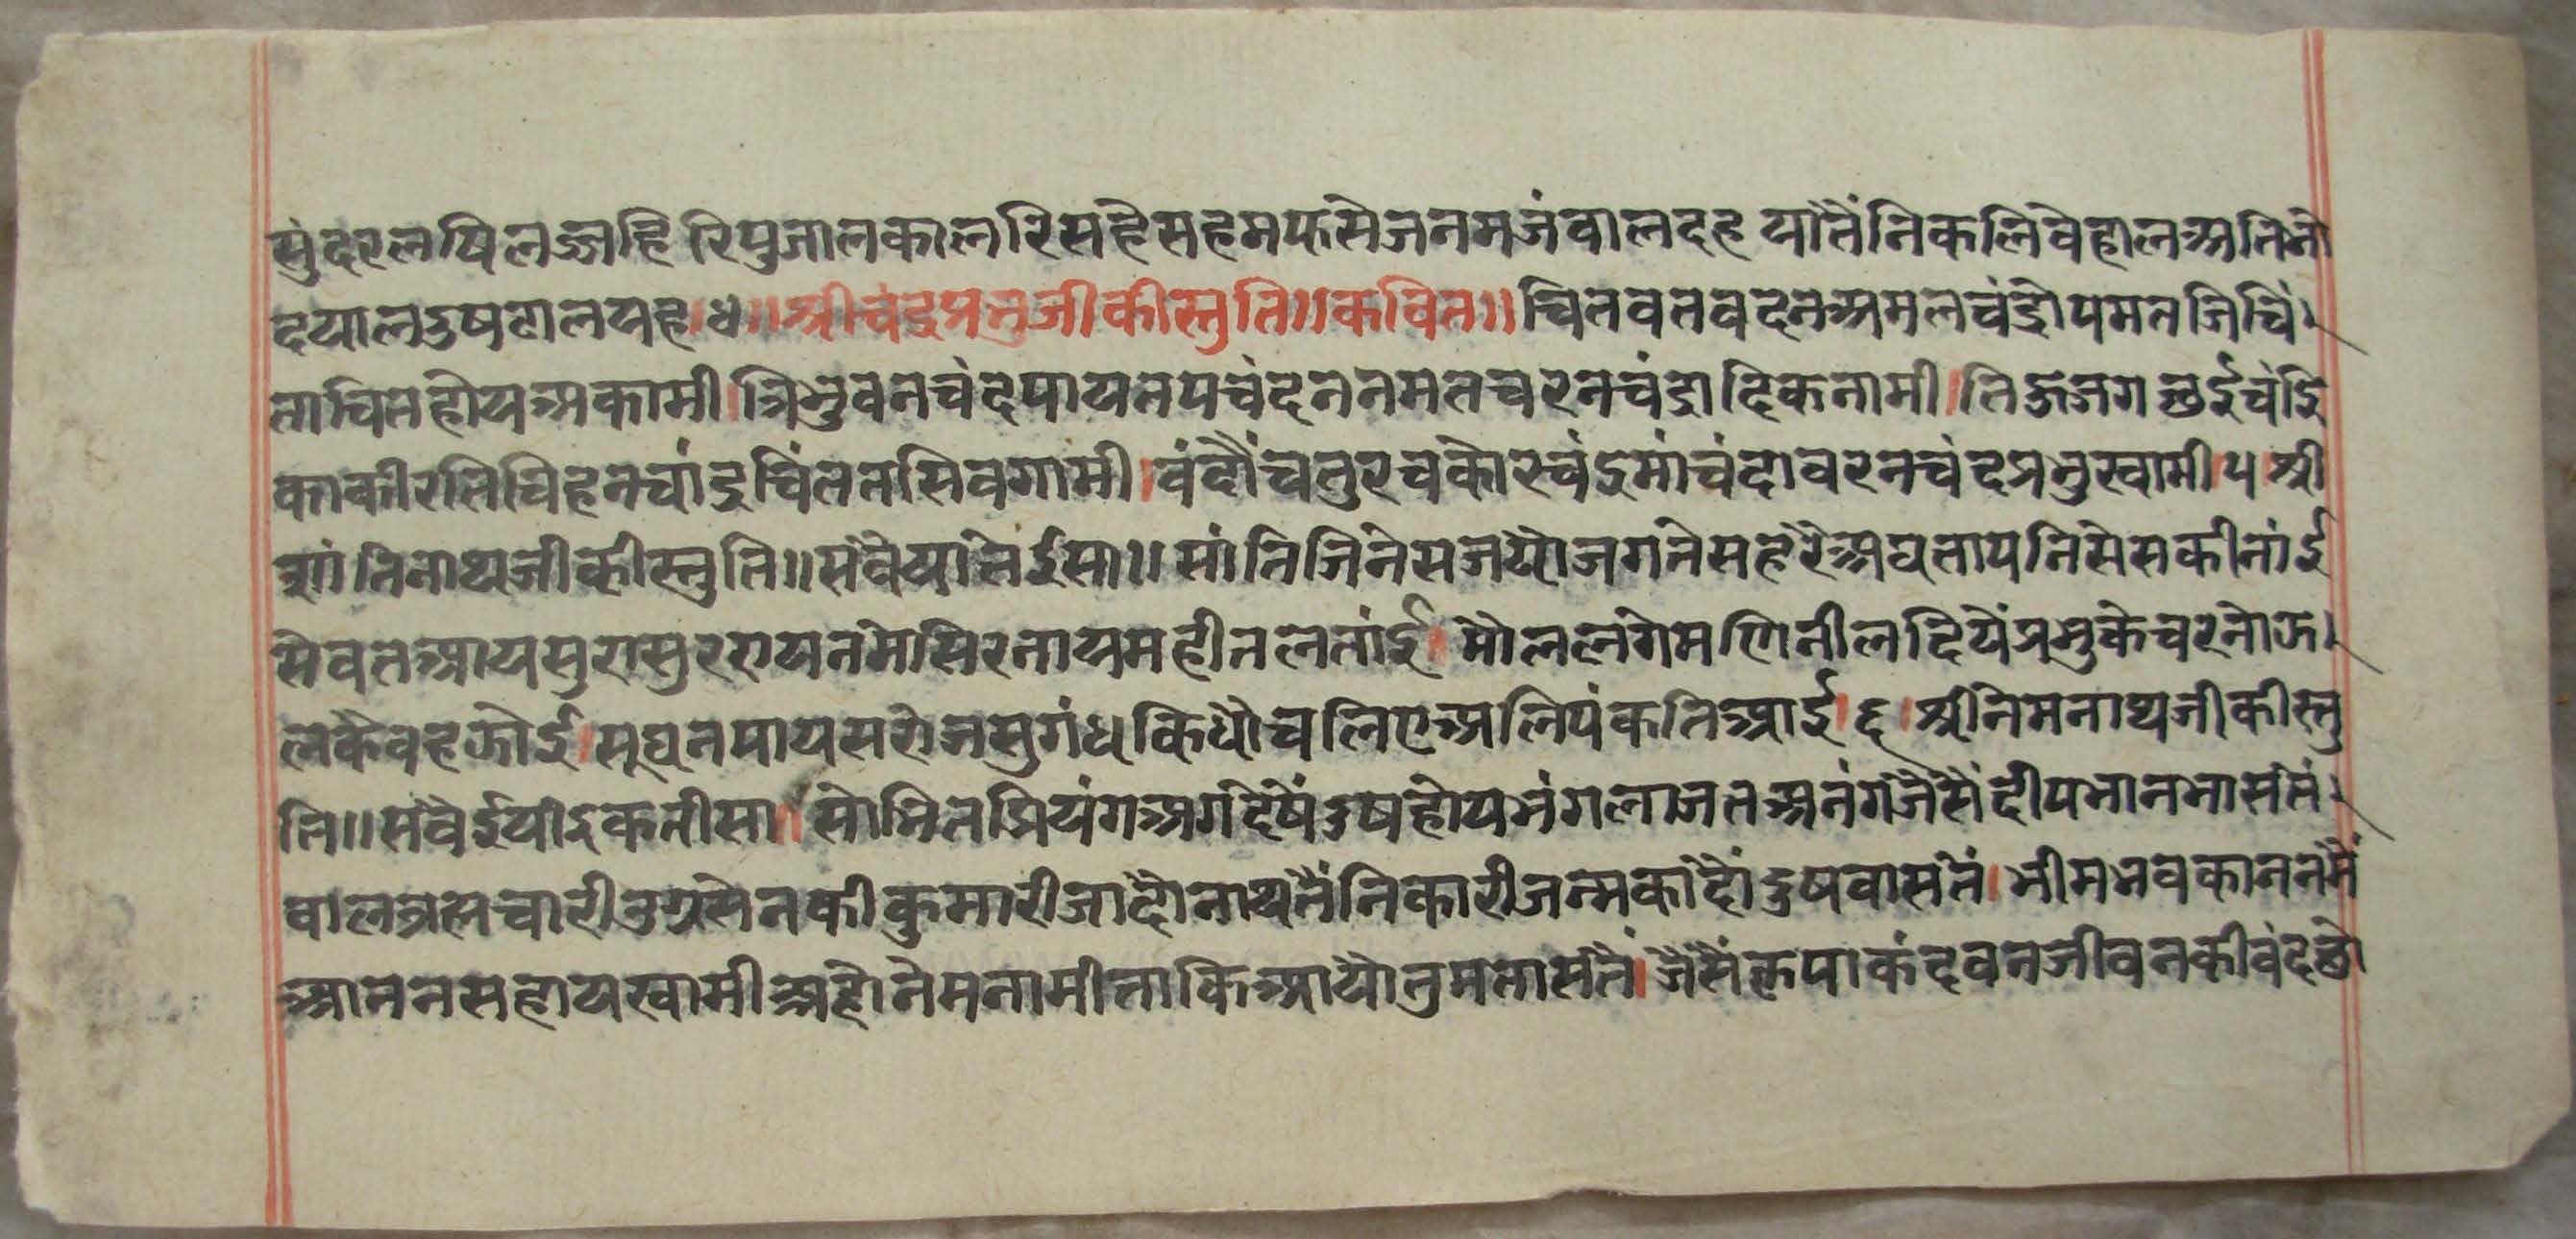 सुंदरलषिलज्जहि रिपुजालकालरिसहैसहमफसेजनमजंवालदह यातैंनिकलिवेहालअतिनो
दयालदुषटालयह।४॥श्रीचंद्रप्रभुजीकीस्तुति॥कवित॥चितवतवदनअमलचंद्रोपमतजिचिं।
ताचितहोयअकामी।त्रिभुवनचंदपायतपचंदननमतचरनचंद्रादिकनामी।तिज्जगगछईचंद्रि
काकीरतिचिहनचांद्रचिंततसिवगामी।वंदौंचतुरचकोरचंद्रमांचंदावरनचंदप्रभुस्वामी।५।श्री
शांतिनाथजीकीस्तुति॥सवैयातेईसा॥सांतिजिनेसजयोजगतेसहरैअघतापनिसेसकीनांई
सेवतआयसुरासुररायनमेसिरनायमहीतलतांई।मौललगेमणिनीलदियेंप्रभुकेचरनोंऊ।
लकैवहऊंई।सूघनपायसरोजसुगंधकिधौचलिएअलिपंकतिआई।६।श्रीनेमनाथजीकीस्तु
ति॥सवैईयाइकतीसा।सोभितप्रियंगअगदेषैंदुषहोयभंगलाजतअनंगजैसैंदीपभानभासतैं।
वालब्रह्मचारीउग्रसेनकीकुमारीजादौनाथतैंनिकारीजन्मकादौंदुषवासतैं।भीमभवकाननमैं
आननसहायस्वामीअहोनेमनामीताकिआयोतुमतासतैं।जैसैंकृपाकंदवनजीवनकीवंदछो